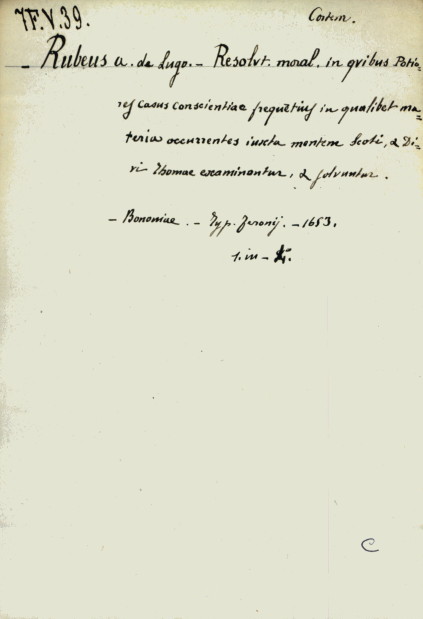 7.F.V.39.
Contem.
– Rubeus a. de Lugo. – Resolut. moral. in quibus Potio=
res casus conscientiae frequentius in qualibet ma=
teria occurrentes iuxta mentem Scoti, & Di=
vi Thomae examinantur, & solvuntur.
– Bononiae. – Typ. Feronij. – 1653.
1. in – 4.º
C